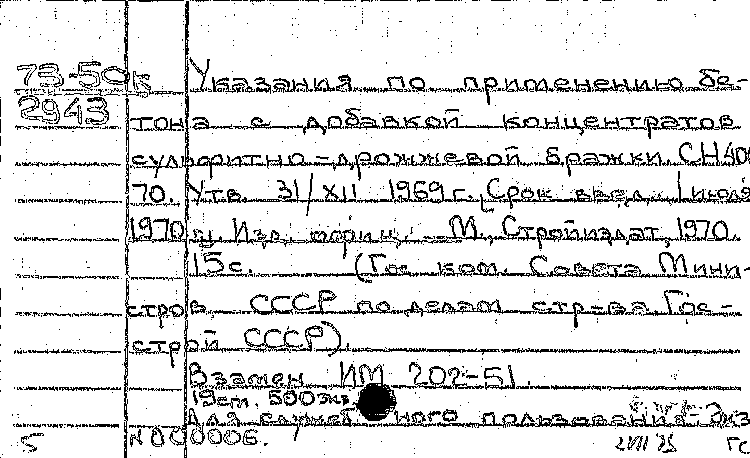 73-50к
2943
Указания по применению бе-
тона с добавкой концентратов
сульфитно-дрожжевой бражки. СН 406
70. Утв. 31/XII 1969 г. Срок введ. 1 июля
1970 г. Изд. офиц. М., Стройиздат, 1970.
15 с. (Гос ком. Совета Мини-
стров СССР по делам стр-ва. Гос-
строй СССР).
Взамен ИМ 202-51.
19см. 500экз.
Для служебного пользования. Экз
N 000006.
5